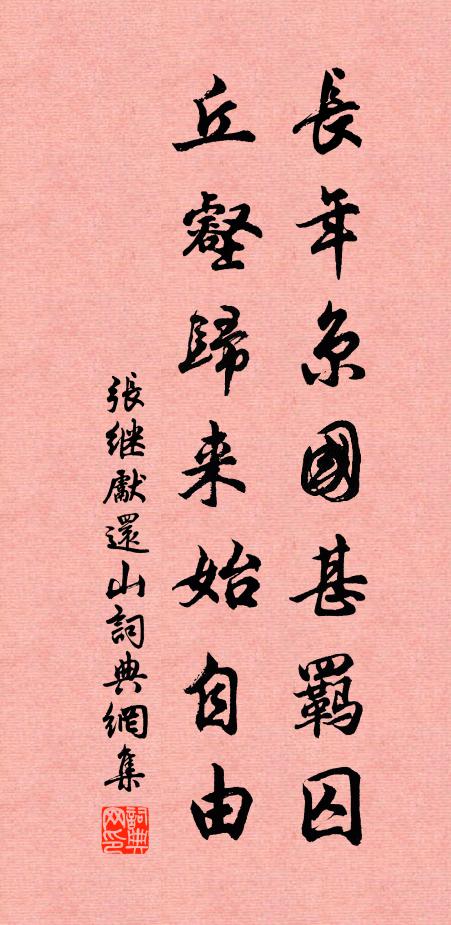 長年京國甚羈囚
丘壑歸来始自由
張继獻還山詞典網集
詞典网印